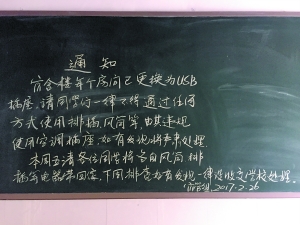 通知
宿舍楼每个房间已更换为USB
插座,请同学们一律不得通过任何
方式使用排插,风筒等,由其违规
使用空调插座,如有发现将严肃处理.
本周五请各位同学将各自风筒排
插等电器带回家,下周排查如有发现一律没收交学校处理.
宿管组.2017.2.26